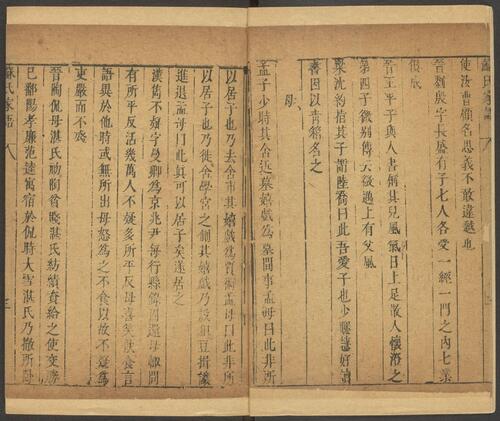 使汝曹顧名思義不敢違越也
晉劉殷字長盛有子七人各受一經一門之內七業
俱成
晉王平子與人書稱其兒風氣日上足散人懷澄之
第四子微別傳云微邁上有父風
梁沈約指其子謂陸喬曰此吾愛子也少聰慧好讀
書因以青箱名之
母
孟子少時其舍近墓嬉戲為墓間事孟母曰此非所
以居子也乃去舍市其嬉戲為賈衒孟母曰此非所
以居子也乃徙舍學宮之側其嬉戲乃設俎豆揖讓
進退孟母曰此真可以居子矣遂居之
漢雋不疑字曼卿為京兆尹每行縣錄囚還母輒問
有所平反活幾萬人不疑多所平反母喜笑飲食言
語異於他時或無所出母怒為之不食以故不疑為
吏嚴而不殘
晉陶侃母湛氏初陶貧賤湛氏紡績資給之使交勝
己鄱陽孝廉范逵寓宿於侃時大雪湛氏乃撤所臥
蘇氏家語 八 三